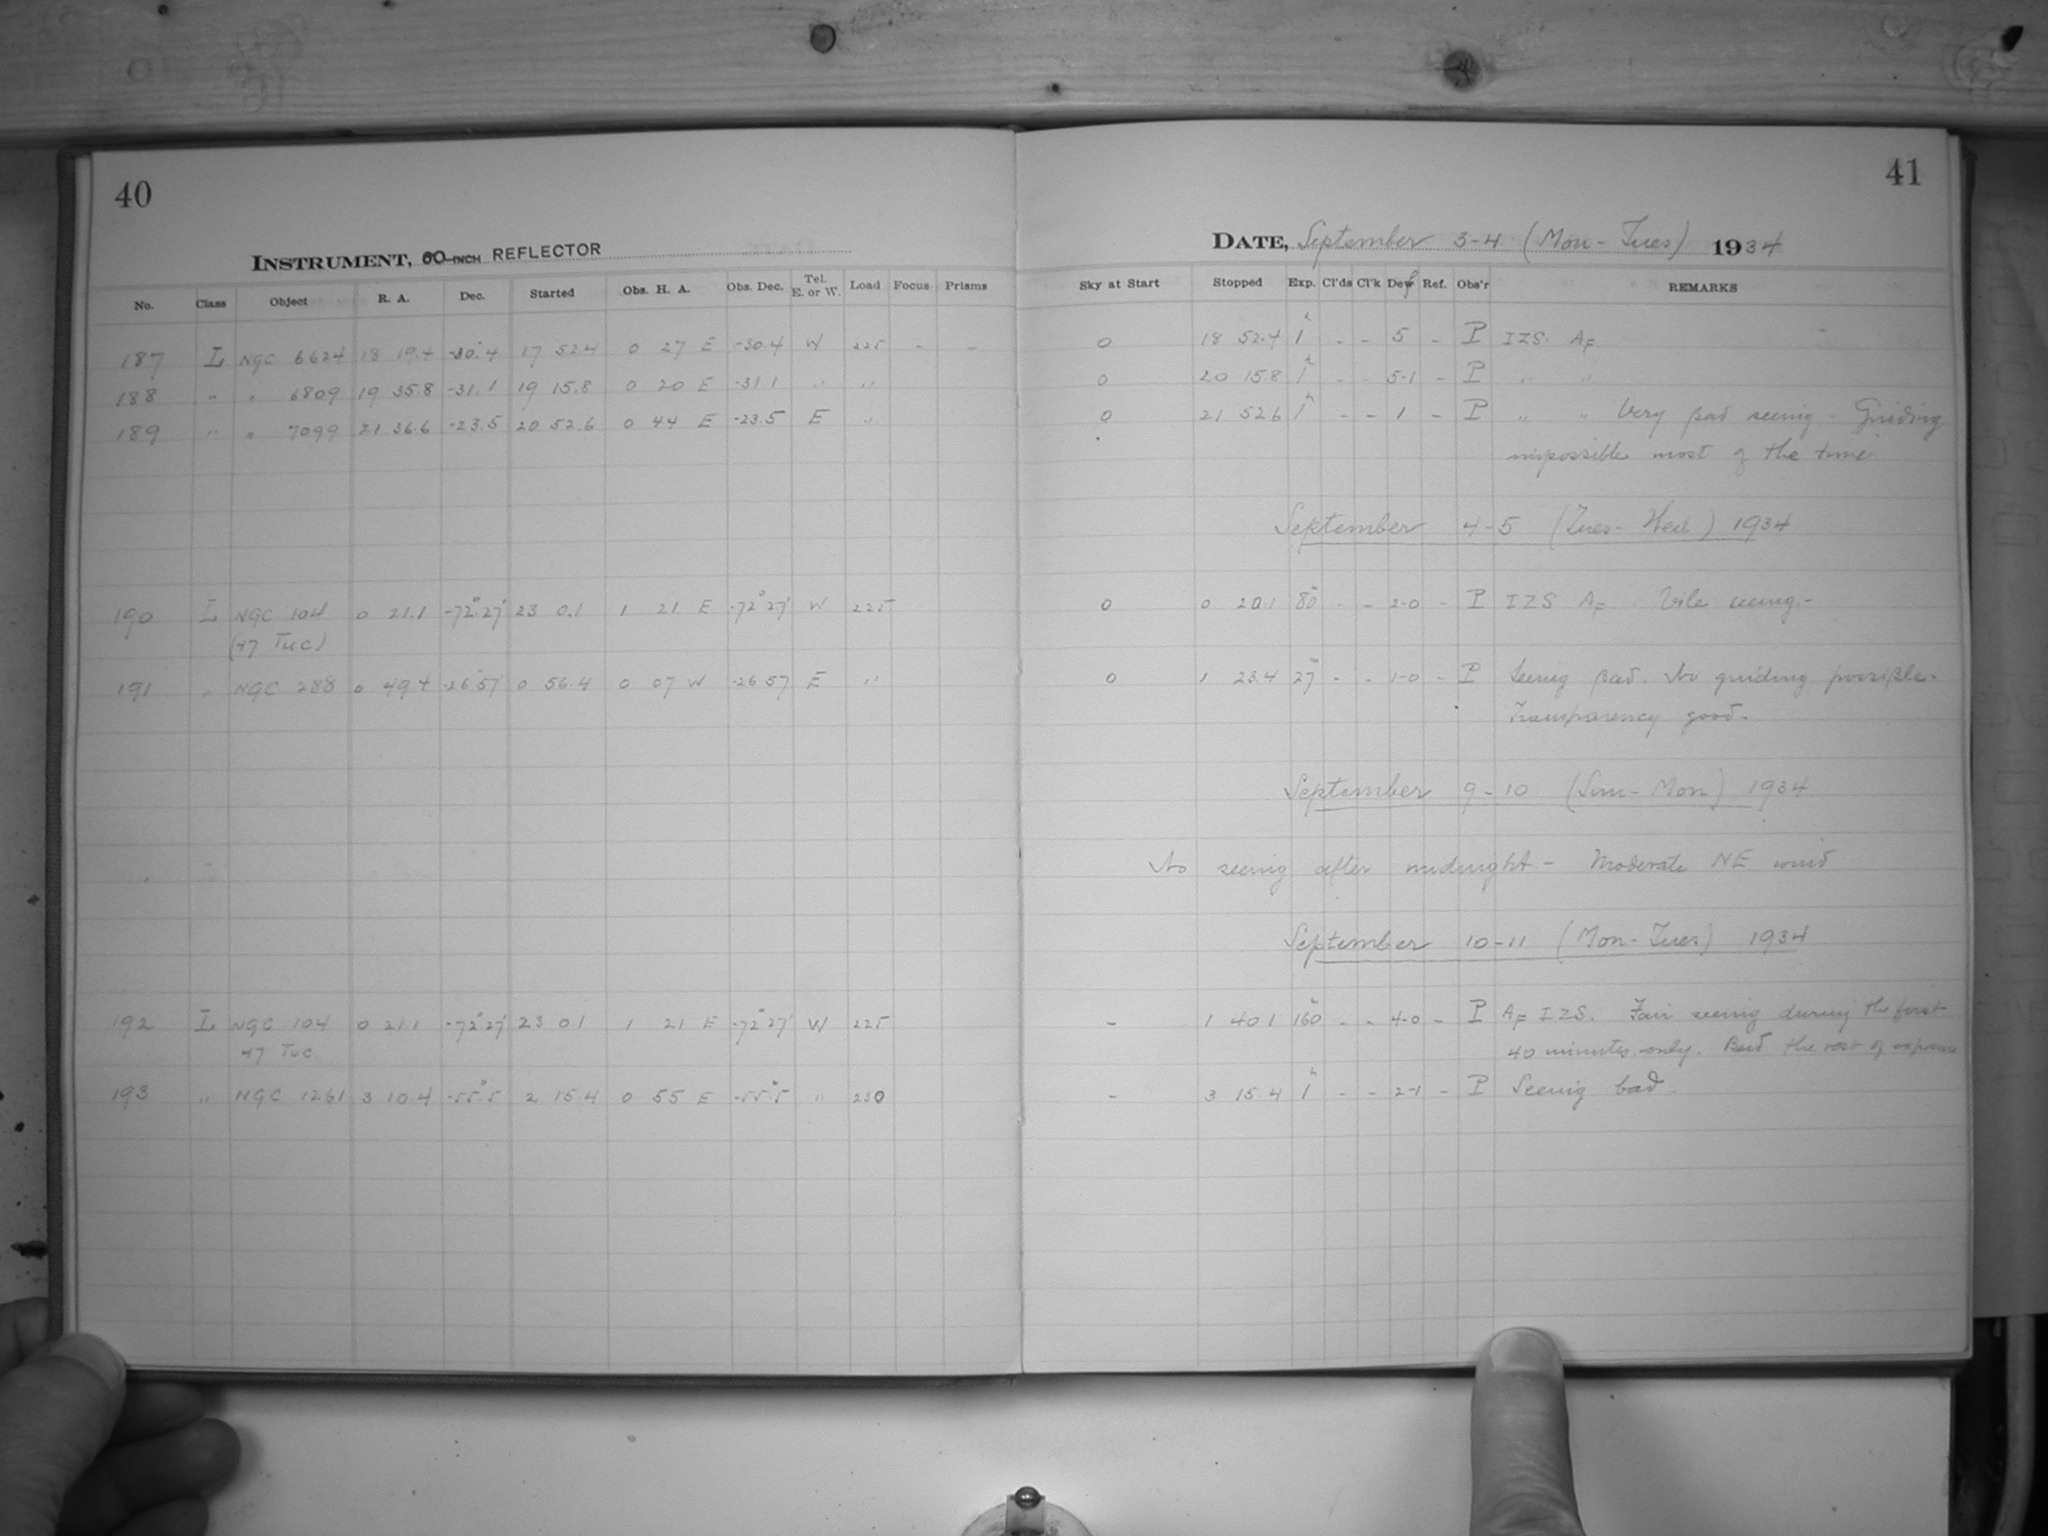 40
INSTRUMENT, 60-INCH REFLECTOR
No. Class Object R. A. Dec. Started Obs. H. A. Obs. Dec. Tel. E. or W. Load Focus Prisms
187 L NGC 6624 18 19.4 -30.4 17 52.4 0 27 E -30.4 W 225 - -
188 " " 6809 19 35.8 -31.1 19 15.8 0 20 E -31.1 " "
189 " " 7099 21 36.6 -23.5 20 52.6 0 44 E -23.5 E "
190 L NGC 104 0 21.1 -72° 27' 23 0.1 1 21 E -72° 27' W 225
(47 Tuc)
191 " NGC 288 0 49.4 -26 57' 0 56.4 0 07 W -26 57 E "
192 L NGC 104 0 21.1 -72° 27' 23 0.1 1 21 E -72° 27' W 225
47 Tuc.
193 " NGC 1261 3 10.4 -55°.5 2 15.4 0 55 E -55°.5 " 230
41
DATE, September 3-4 (Mon-Tues) 1934
Sky at Start Stopped Exp. Cl'ds Cl'k Dew Ref. Obs'r REMARKS
0 18 52.4 1h - - 5 - P IZS. AF
0 20 15.8 1h - - 5-1 - P " "
0 21 52.6 1h - - 1 - P " " Very bad seeing - Guiding
impossible most of the time
September 4-5 (Tues-Wed) 1934
0 0 20.1 80m - - 2-0 - P IZS AF Vile seeing -
0 1 23.4 27m - - 1-0 - P Seeing bad. No guiding possible -
Transparency good.
September 9-10 (Sun-Mon) 1934
No seeing after midnight - Moderate NE wind
September 10-11 (Mon-Tues) 1934
- 1 40.1 160m - - 4-0 - P AF IZS. Fair seeing during the first
40 minutes only. Bad the rest of exposure
- 3 15.4 1h - - 2-1 - P Seeing bad.